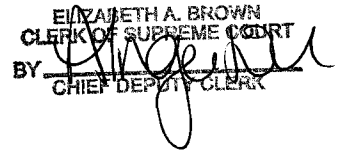 ELIZABETH A. BROWN
CLERK OF SUPREME COURT
BY
CHIEF DEPUTY CLERK